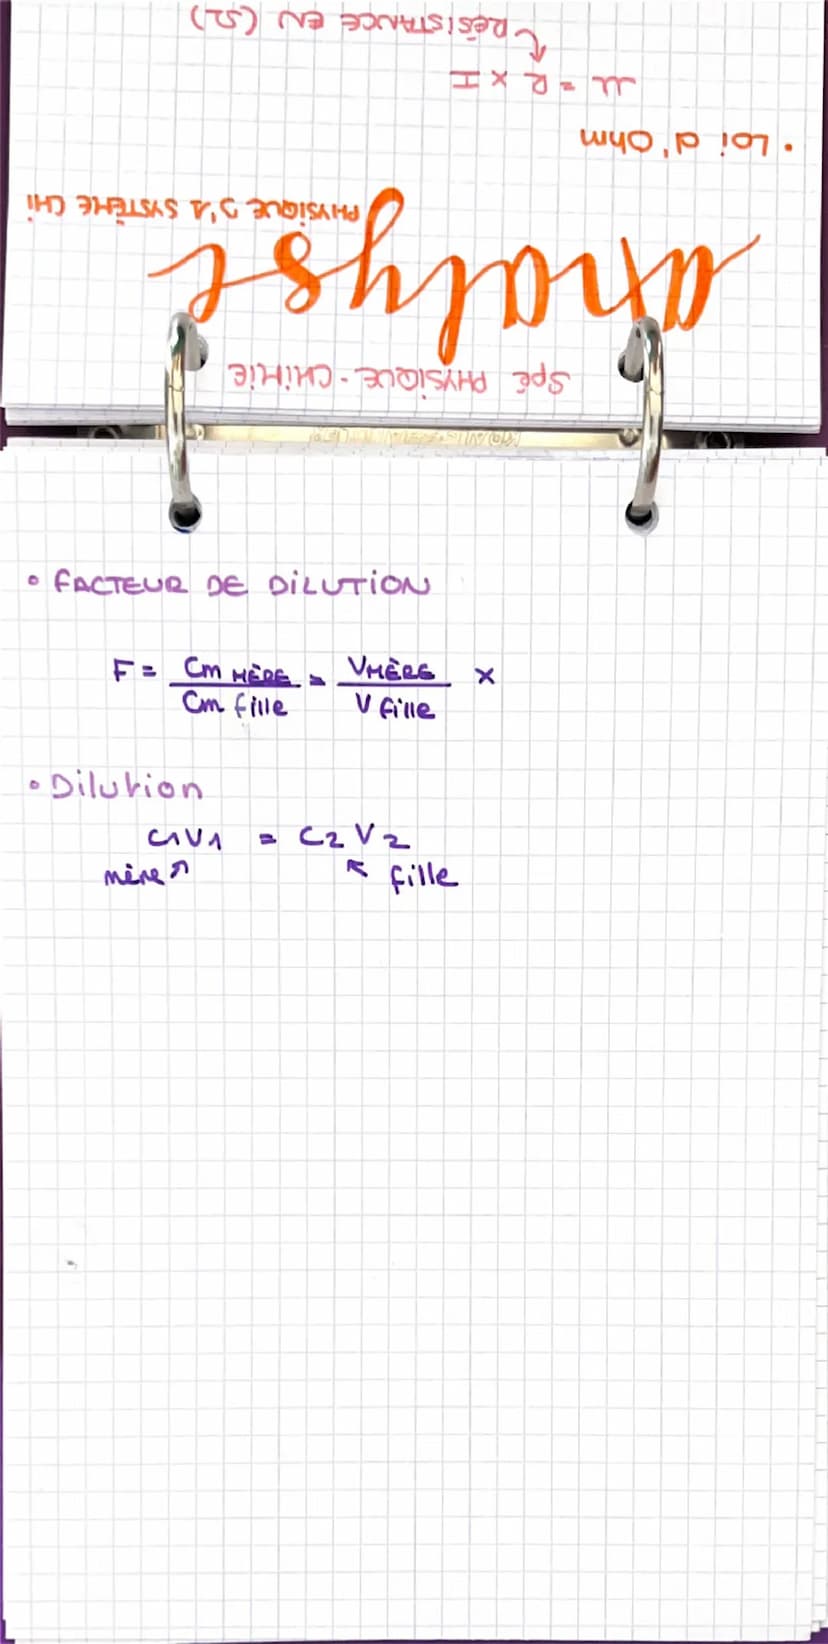 SPÉ PHYSIQUE-CHIMIE
analyse
PHYSIQUE D'1 SYSTÈME CHI
• Loi d'Ohm
U = R x I
RÉSISTANCE EN (Ω)
• FACTEUR DE DILUTION
F = Cm MÈRE / Cm fille = V MÈRE / V fille x
• Dilution
C1V1 = C2V2
mère ↗ ↖ fille